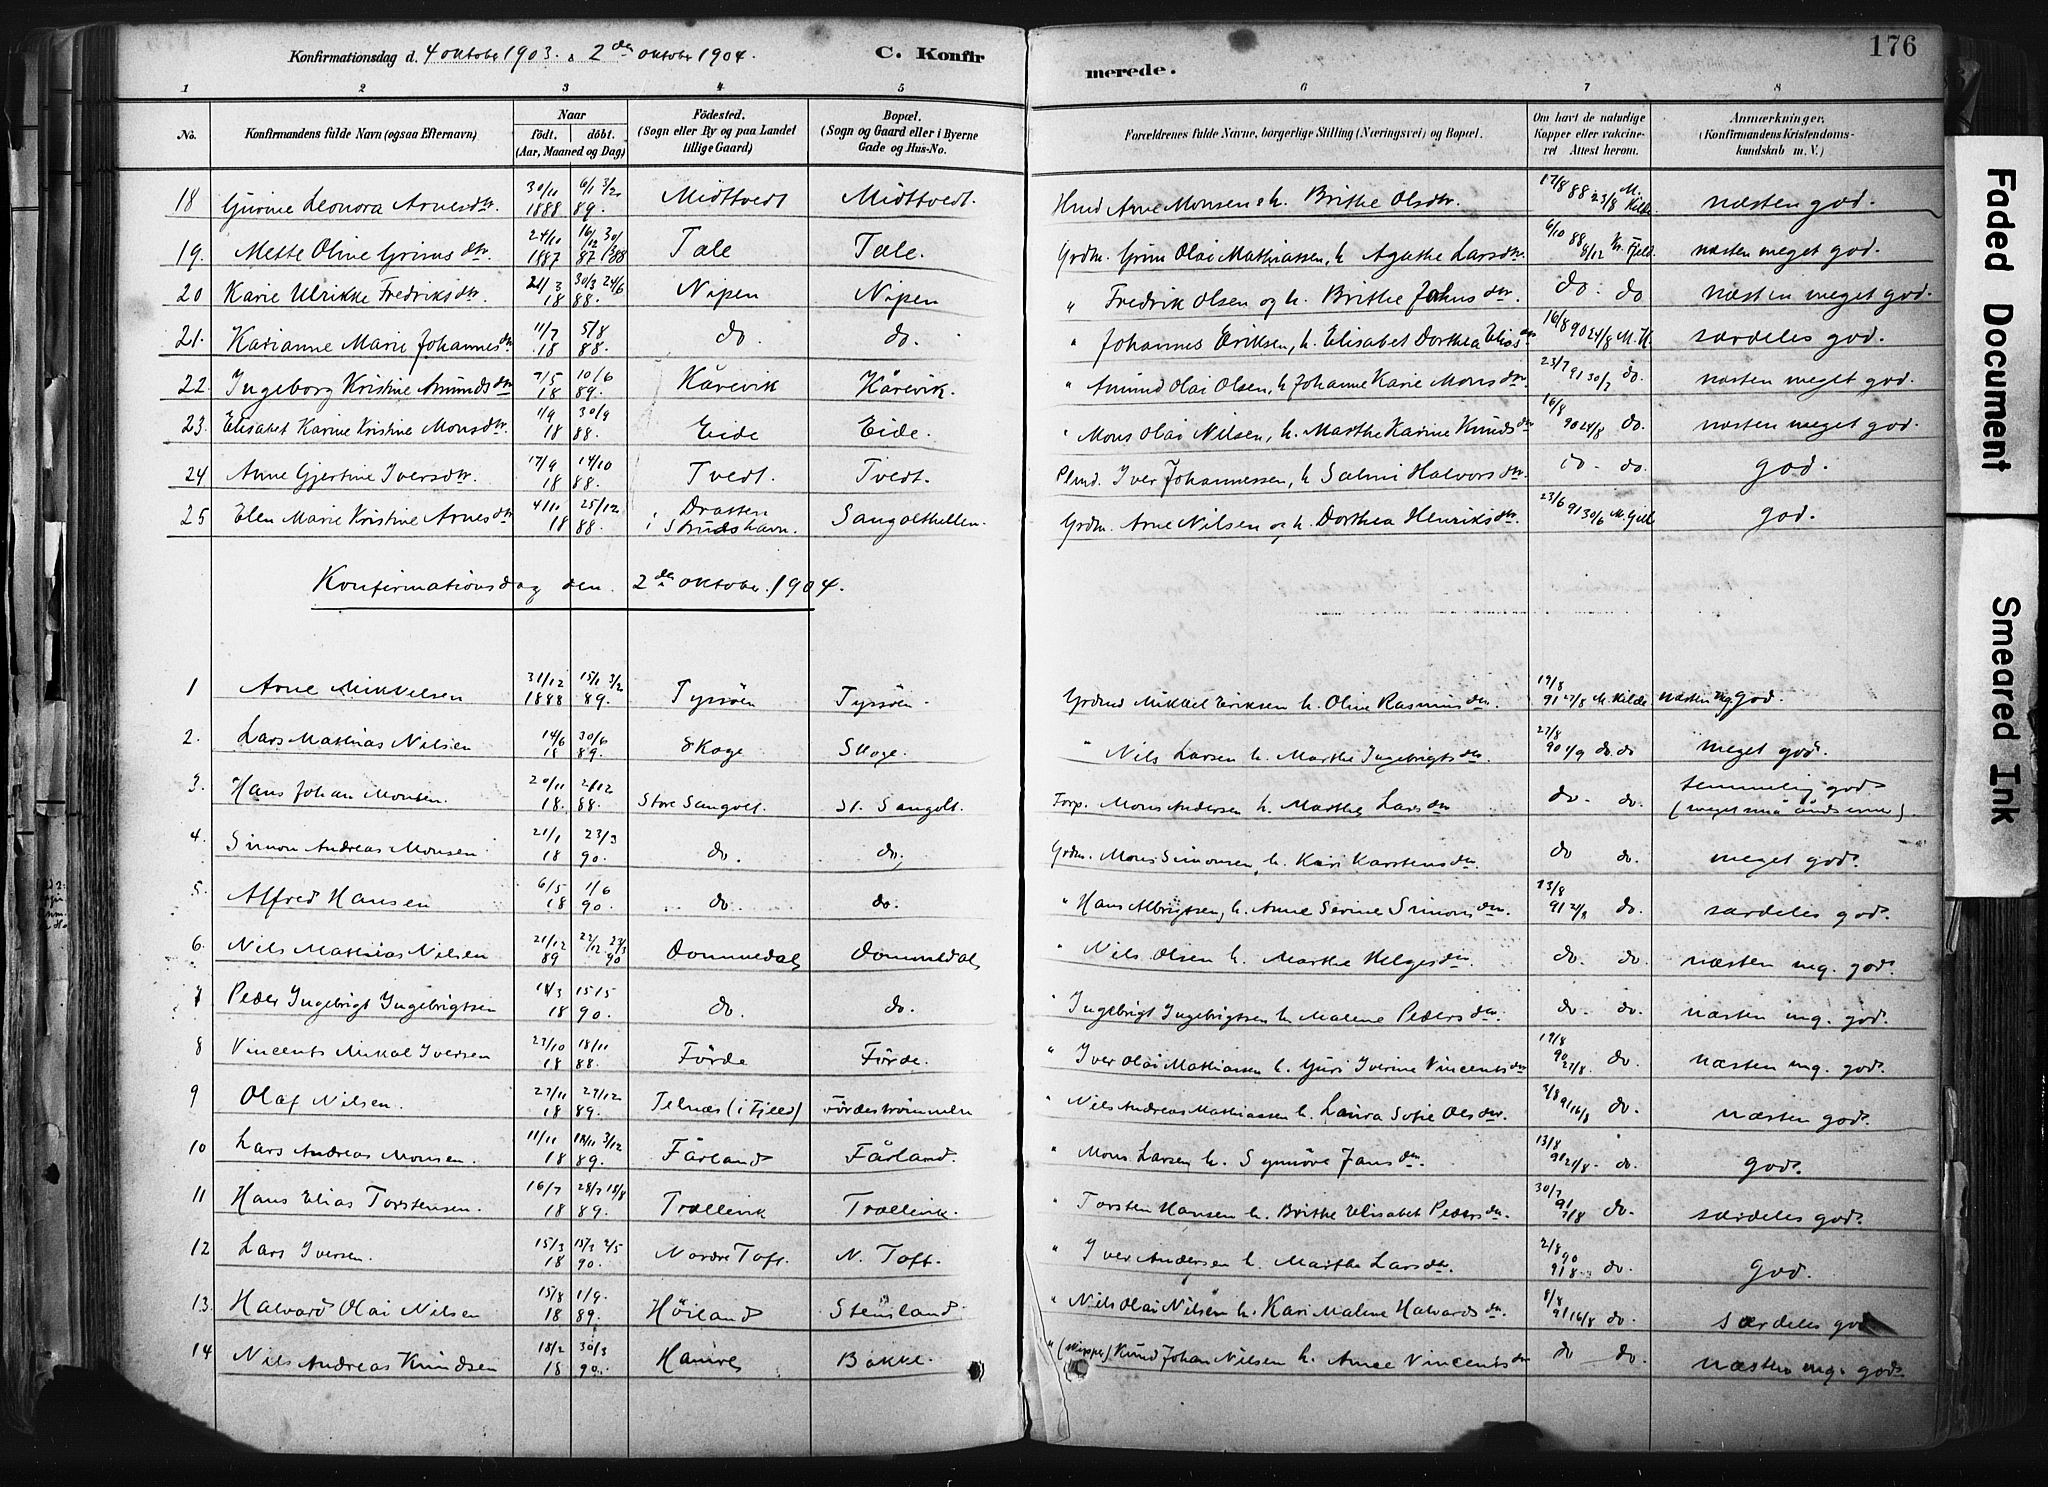 Konfirmationsdag d. 4 oktober 1903. & 2den oktober 1904.
C. Konfirmerede.
176
1 2 3 4 5 6 7 8
No.
Konfirmandens fulde Navn (ogsaa Efternavn)
Naar
födt. döbt.
(Aar, Maaned og Dag)
Födested.
(Sogn eller By og paa Landet tillige Gaard)
Bopæl.
(Sogn og Gaard eller i Byerne Gade og Hus-No.
Forældrenes fulde Navne, borgerlige Stilling (Næringsvei) og Bopæl.
Om havt de naturlige Kopper eller vakcineret Attest herom.
Anmærkninger.
(Konfirmandens Kristendomskundskab m. V.)
18 Gurine Leonora Arnesdtr. 30/11 1888 6/1 3/2 89. Midttvedt Midttvedt. Hmd Arne Monsen & h. Brithe Olsdtr. 17/8 88 23/8 M. Kilde næsten god.
19. Mette Oline Grimsdtr. 24/10 1887 Tale Tale. Grdm. Grim Olai Mathiassen, h. Agathe Larsdtr. 6/10 88 8/12 næsten meget god.
20 Karie Ulrikke Fredriksdtr. 21/3 18 30/3 24/6 88. Nipen Nipen " Fredrik Olsen og h. Brithe Johnsdtr. do. do næsten meget god.
21. Karianne Marie Johannesdtr 11/7 18 5/8 88. do. do. " Johannes Eriksen, h. Elisabet Dorthea Eliasdtr 16/8 90 24/8 M. K. særdeles god.
22. Ingeborg Kristine Amundsdtr 7/5 18 10/6 89. Kårevik Kårevik. " Amund Olai Olsen, h Johanne Karie Monsdtr. 23/7 91 30/7 do. næsten meget god.
23. Elisabet Karine Kristine Monsdtr. 1/9 18 30/9 88. Eide Eide. " Mons Olai Nilsen, h. Marthe Karine Knudsdtr 16/8 90 24/8 do. næsten meget god.
24 Anne Gjertine Iversdtr. 17/9 18 14/10 88. Tvedt. Tvedt. Plmd. Iver Johannessen, h Salmi Halvorsdtr. do. do. god.
25 Elen Marie Kristine Arnesdtr 4/10 18 25/12 88. Dratten i Strudshavn. Sangolthellen. Grdm. Arne Nilsen og h. Dorthea Henriksdtr. 23/6 91 30/6 god.
Konfirmationsdag den 2den oktober. 1904.
1 Arne Mikkelsen 31/12 1888 15/1 3/2 89. Tyssöen Tyssöen. Grdmd Mikkel Eriksen h. Oline Rasmusdtr. 19/8 91 27/8 M. Kilde næsten mg. god.
2. Lars Mathias Nilsen 14/6 18 30/6 89. Skoge Skoge. " Nils Larsen h. Marthe Ingebrigtsdtr. 27/8 90 4/9 do. do meget god.
3. Hans Johan Monsen. 20/11 18. 2/12 88. Store Sangolt. St. Sangolt. Torp. Mons Andersen h. Marthe Larsdtr do. do. temmelig god (meget små åndsevne).
4. Simon Andreas Monsen 21/1 18 23/3 90. do. do, Grdm. Mons Simonsen, h. Kari Karstensdtr. do do. meget god.
5. Alfred Hansen 6/5 18 1/6 90. do do. " Hans Albrigtsen, h. Anne Serine Simonsdtr. 13/8 91 2/9 do. særdeles god.
6. Nils Mathias Nilsen 21/12 89 22/12. 23/3 90 Dommedal Dommedal " Nils Olsen h. Marthe Helgesdtr. do. do. næsten mg. god.
7 Peder Ingebrigt Ingebrigtsen 14/3 18 15/5 90. do. do. " Ingebrigt Ingebrigtsen h. Malene Pedersdtr. do. do. næsten mg. god.
8 Vincents Mikal Iversen 23/10 18 18/11 88. Förde Förde. " Iver Olai Mathiassen h. Guri Iverine Vincentsdtr 19/8 90 27/8. do. næsten mg. god.
9 Olaf Nilsen. 27/11 18 27/12 89. Telnæs (i Fjeld) Fördeströmmen " Nils Andreas Mathiassen h. Laura Sofie Olsdtr. 3/8 91 16/8 do. næsten god.
10 Lars Andreas Monsen. 11/11 18 18/11 3/12 89. Fårland Fårland. " Mons Larsen h. Synnöve Jansdtr. 13/8 91 21/8. do. god.
11 Hans Elias Torstensen. 16/7 18 28/7 18/8 89. Trællevik Trællevik. " Torsten Hansen h. Brithe Elisabet Pedersdtr. 30/7 91 7/8 do. særdeles god.
12 Lars Iversen. 15/3 18 15/3 2/5 90. Nordre Toft. N. Toft. " Iver Andersen h. Marthe Larsdtr. 2/8 90 do. god.
13. Halvard Olai Nilsen 15/8 18 1/9. 89. Höiland Stensland. " Nils Olai Nilsen h. Kari Malene Halvardsdtr. 8/8 91 16/8 do. særdeles god
14 Nils Andreas Knudsen 18/2 18 30/3 90. Hamre Bakke. " (Skipper) Knud Johan Nilsen h. Anne Vincentsdtr do do. næsten mg. god.
Faded Document
Smeared Ink